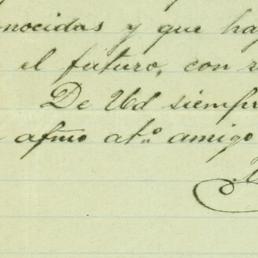 nocidas y que ha
el futuro, con
De Ud siempre
afmo at.º amigo